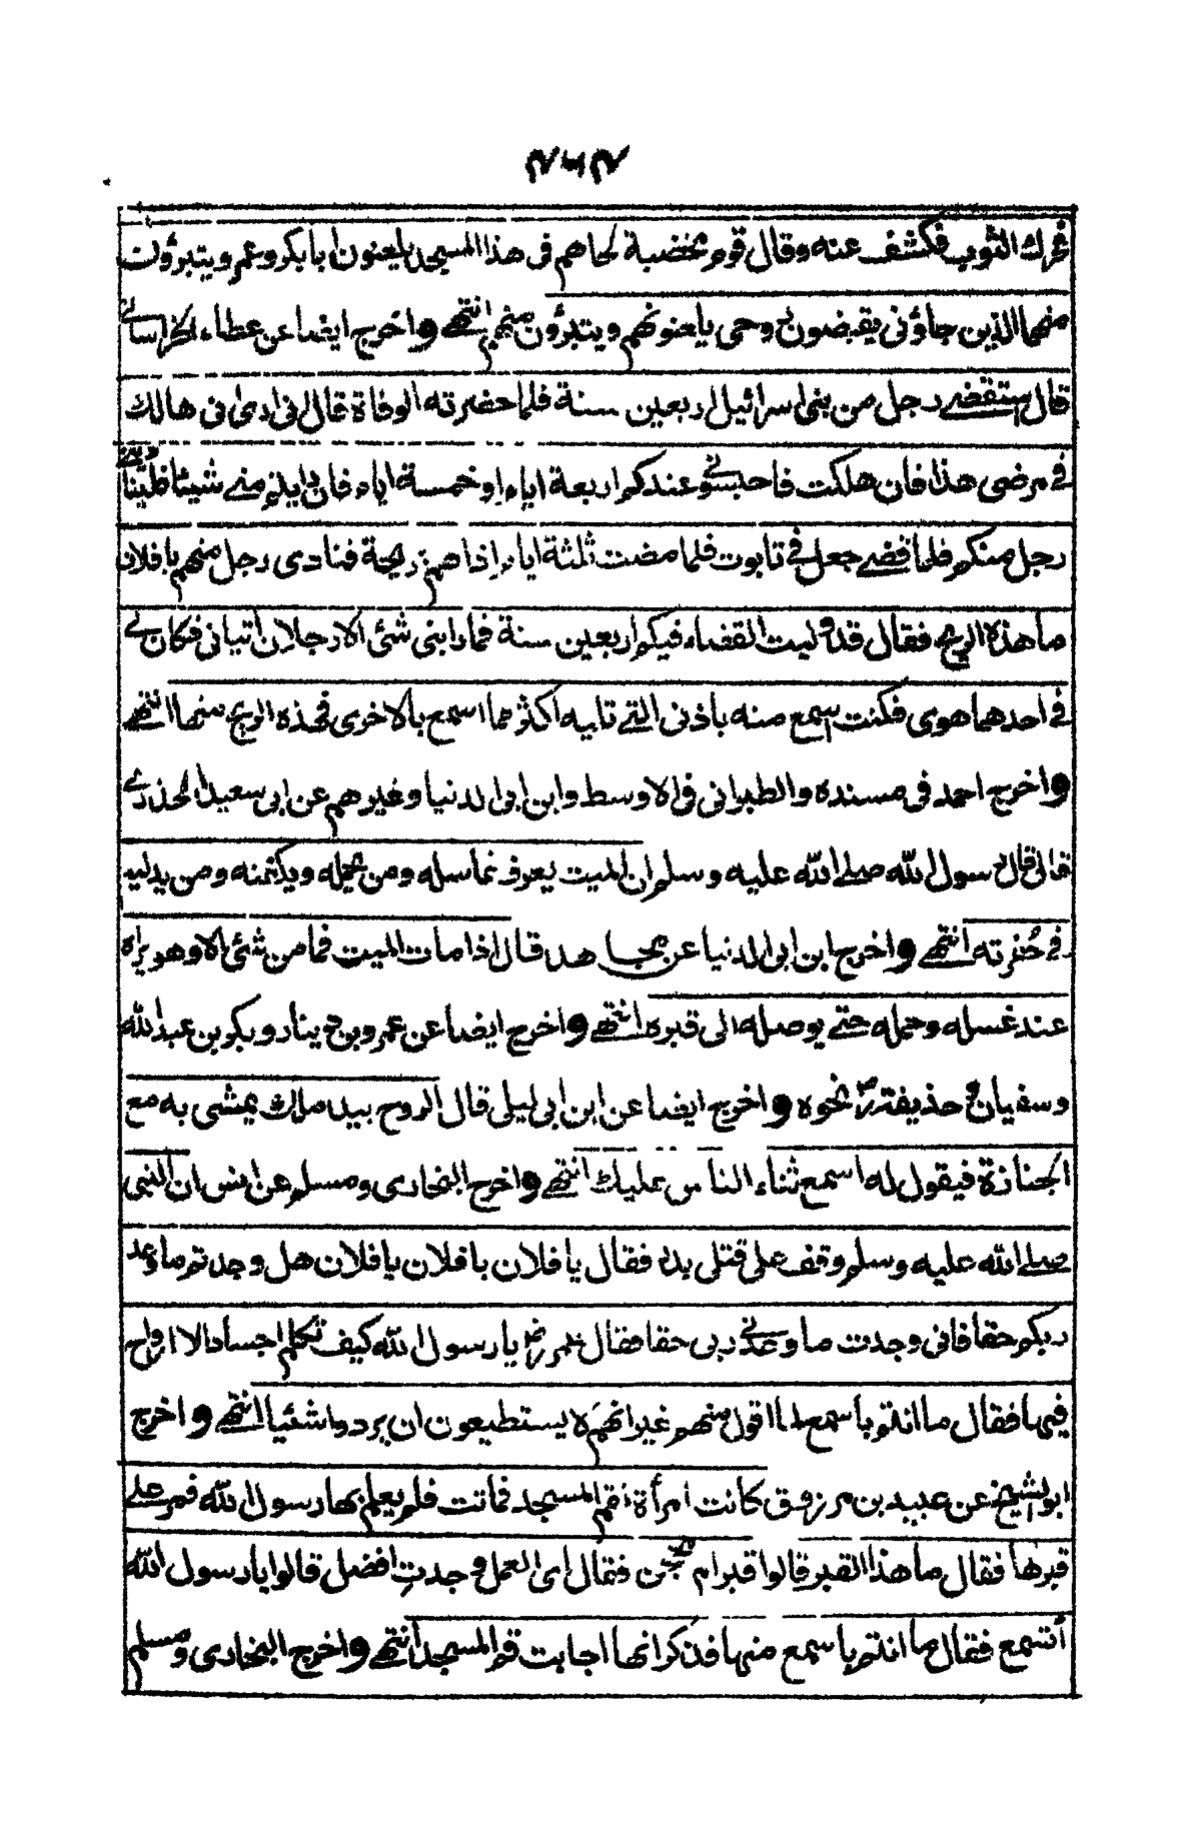 فحرك الثوب فكشف عنه وقال قوم مخضبة لحاهم فى هذا المسجد يلعنون ابا بكر وعمر ويتبرؤن
منهما الذين جاؤنى يقبضون روحى يلعنونهم ويتبرؤن منهم انتهے واخرج ايضا عن عطاء الخراسانے
قال استقضے رجل من بنى اسرائيل اربعين سنة فلما حضرته الوفاة قال انى ارى انى هالك
فے مرضى هذا فان هلكت فاحبسونے عندكم اربعة ايام او خمسة ايام فان رايتم منے شيئا فليناد
رجل منكم فلما قضے جعل فے تابوت فلما مضت ثلثة ايام اذا هم بريحة فنادى رجل منهم يا فلان
ما هذه الريح فقال قد وليت القضاء فيكم اربعين سنة فما رابنى شئ الا رجلان اتيانى فكان لے
فے احدهما هوى فكنت اسمع منه باذنى التے تليه اكثر مما اسمع بالاخرى فهذه الريح منها انتهے
واخرج احمد فى مسنده والطبرانى فى الاوسط وابن ابى الدنيا وغيرهم عن ابى سعيد الخدرے
قال قال رسول الله صلے الله عليه وسلم ان الميت يعرف من غاسله ومن يحمله ويكفنه ومن يدليه
فے حفرته انتهے واخرج ابن ابى الدنيا عن مجاهد قال اذا مات الميت فما من شئ الا وهو يراه
عند غسله وحمله حتے يوصله الى قبره انتهے واخرج ايضا عن عمرو بن دينار وبكر بن عبد الله
وسفيان وحذيفة رض نحوه واخرج ايضا عن ابن ابى ليلى قال الروح بيد ملك يمشى به مع
الجنازة فيقول له اسمع ثناء الناس عليك انتهے واخرج البخارى ومسلم عن انس ان النبى
صلے الله عليه وسلم وقف على قتلى بدر فقال يا فلان يا فلان يا فلان هل وجدتم ما وعد
ربكم حقا فانى وجدت ما وعدنے ربى حقا فقال عمر رض يا رسول الله كيف تكلم اجسادا لا ارواح
فيها فقال ما انتم باسمع لما اقول منهم غير انهم لا يستطيعون ان يردوا شئيا انتهے واخرج
ابو الشيخ عن عبيد بن مرزوق كانت امرأة تقم المسجد فماتت فلم يعلم بها رسول الله فمر علے
قبرها فقال ما هذا القبر قالوا قبر ام محجن فقال اى العمل وجدت افضل قالوا يا رسول الله
أتسمع فقال ما انتم باسمع منها فذكر انها اجابت قم المسجد انتهے واخرج البخارى ومسلم